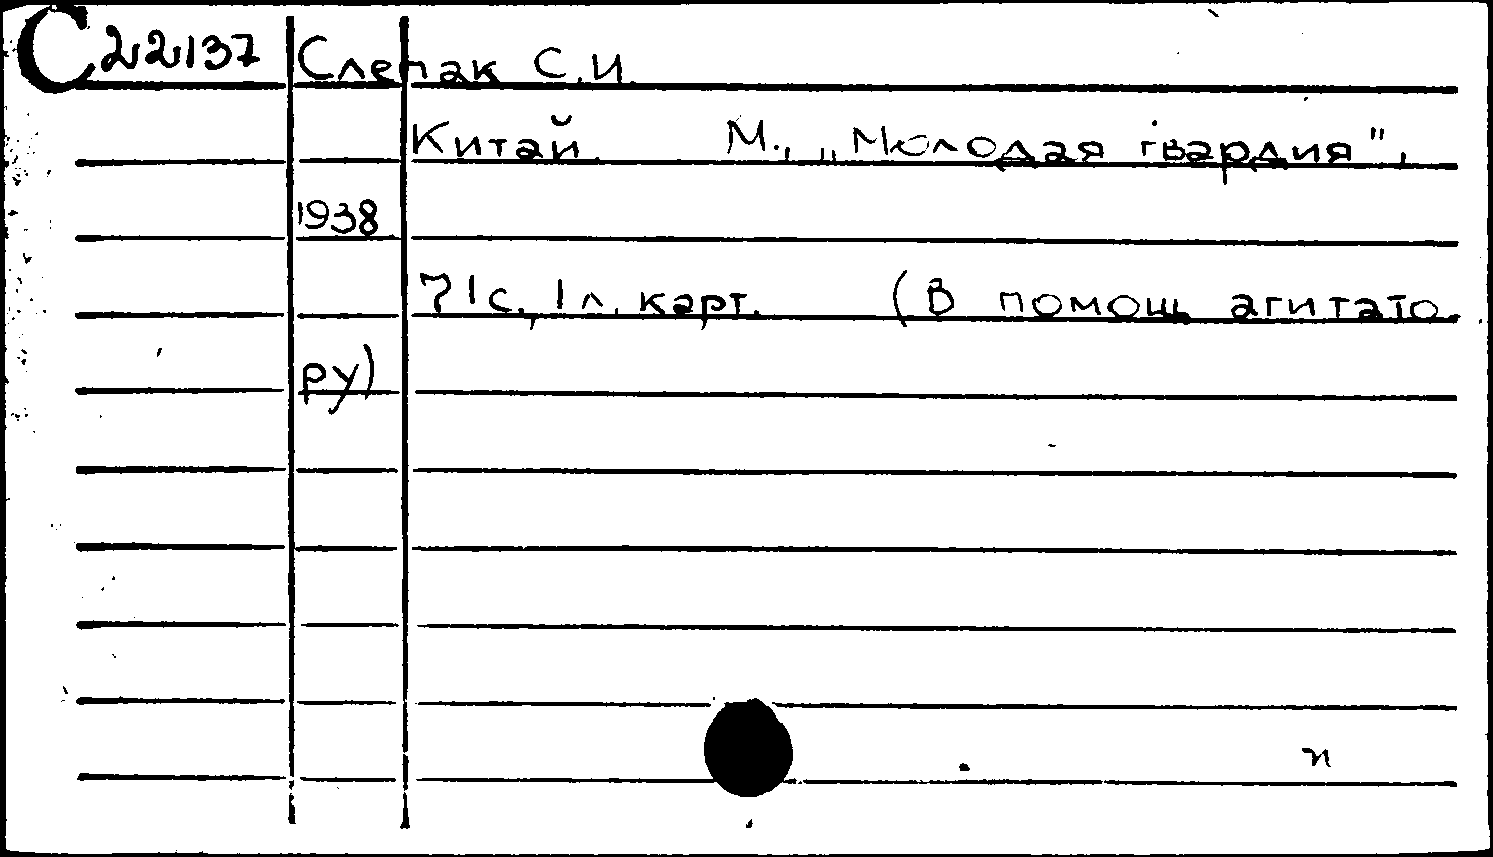 С22137 Слепак С.И.
Китай. М., „Молодая гвардия",
1938
71с., 1л. карт. (В помощь агитато-
ру)
п